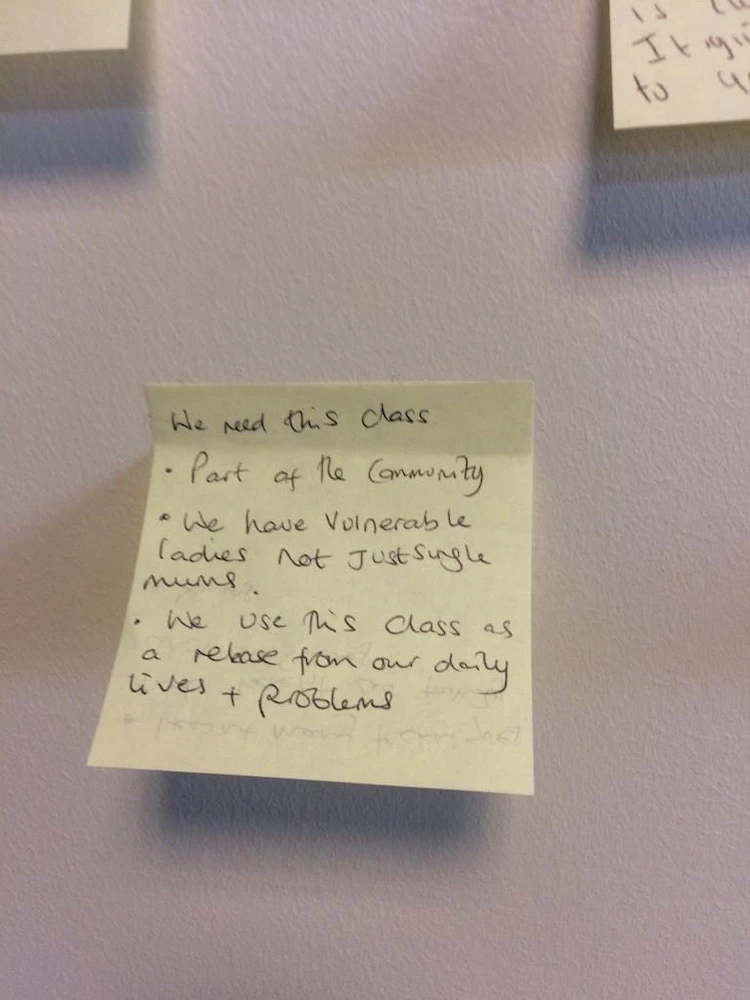 is
It
to
We need this class
• Part of the Community
• We have Vulnerable
ladies not just single
mums.
• We use this class as
a release from our daily
lives + problems